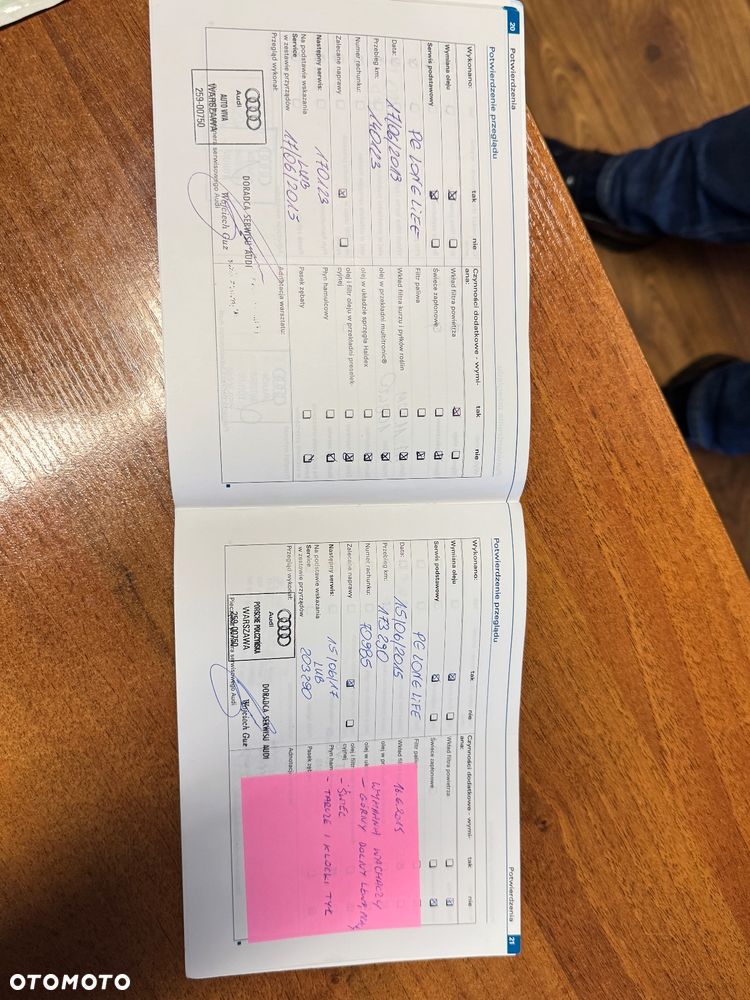 20 Potwierdzenia
Potwierdzenie przeglądu
Wykonano: tak nie
Wymiana oleju
Serwis podstawowy
PG LONG LIFE
Data: 17/06/2013
Przebieg km: 140123
Numer rachunku:
Zalecane naprawy
Następny serwis: 170123
Na podstawie wskazania LUB
Service
w zestawie przyrządów 17/06/2015
Przegląd wykonał:
Audi
AUTO VIVA
WARSZAWA
259-00750
DORADCA SERWISU AUDI
Wojciech Guz
Czynności dodatkowe - wymi-
ana: tak nie
Wkład filtra powietrza
Świece zapłonowe
Filtr paliwa
Wkład filtra kurzu i pyłków roślin
olej w przekładni multitronic®
olej w układzie sprzęgła Haldex
olej i filtr oleju w przekładni preselek-
cyjnej
Płyn hamulcowy
Pasek zębaty
Adnotacja warsztatu:
Potwierdzenia 21
Potwierdzenie przeglądu
Wykonano: tak nie
Wymiana oleju
Serwis podstawowy
PG LONG LIFE
Data: 15/06/2015
Przebieg km: 173290
Numer rachunku: 70985
Zalecane naprawy
Następny serwis: 15/06/17
Na podstawie wskazania LUB
Service
w zestawie przyrządów 203290
Przegląd wykonał:
Audi
PORSCHE POŁCZYŃSKA
WARSZAWA
259-00750
DORADCA SERWISU AUDI
Wojciech Guz
Czynności dodatkowe - wymi-
ana: tak nie
Wkład filtra powietrza
Świece zapłonowe
Filtr pali
Wkład fil
olej w pr
olej w uk
olej i filt
cyjnej
Płyn ham
Pasek zę
Adnotac
16.6.2015
WYMIANA WACHACZY
- GÓRNY DOLNY LEWY
- ŚWIEC
- TARCZE I KLOCKI TYŁ
OTOMOTO